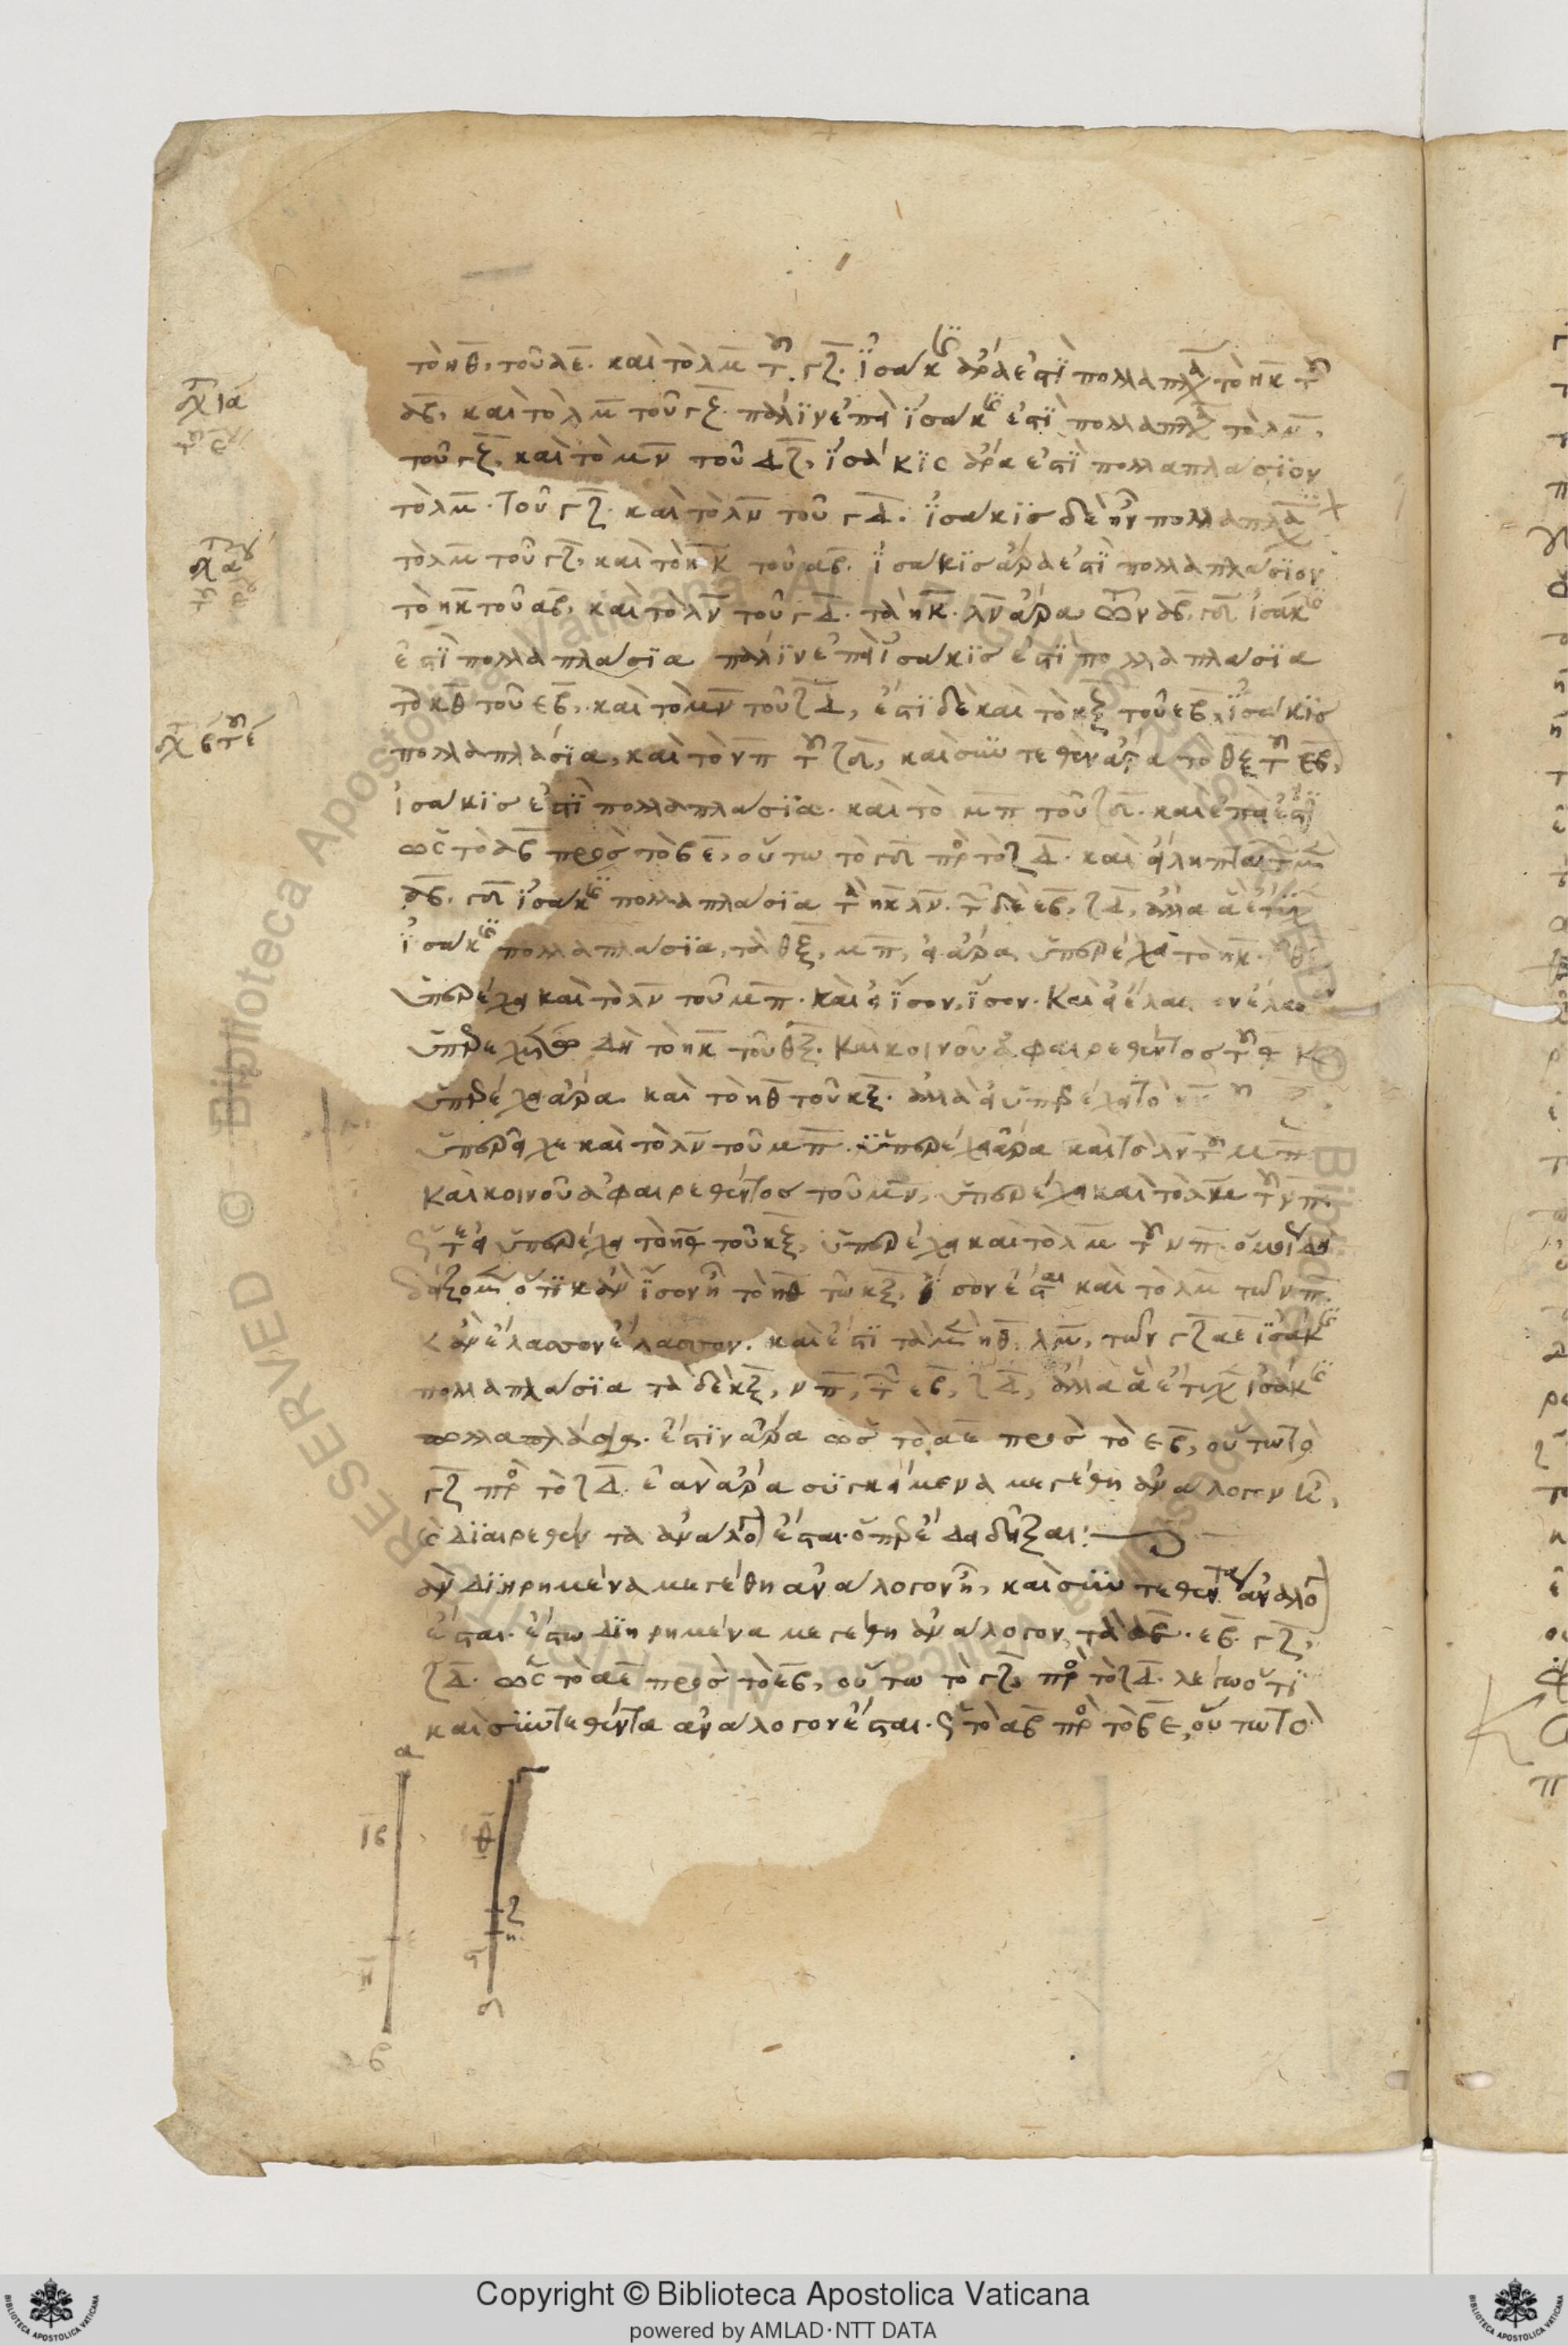 τὸ ηθ, τοῦ αε. καὶ τὸ λμ τοῦ γζ. ἰσάκις ἄρα ἐστὶ πολλαπλάσιον τὸ ηκ τοῦ
αβ, καὶ τὸ λμ τοῦ γζ. πάλιν ἐπεὶ ἰσάκις ἐστὶ πολλαπλάσιον τὸ λμ,
τοῦ γζ, καὶ τὸ μν τοῦ δζ, ἰσάκις ἄρα ἐστὶ πολλαπλασϊον
τὸ λμ. τοῦ γζ. καὶ τὸ λν τοῦ γδ. ἰσακϊς δὲ ἦν πολλαπλάσιον
τὸ λμ τοῦ γζ, καὶ τὸ ηκ τοῦ αβ. ἰσακϊς ἄρα ἐστὶ πολλαπλασϊον
τὸ ηκ τοῦ αβ, καὶ τὸ λν τοῦ γδ. τὰ ηκ. λν ἄρα τῶν αβ, γδ ἰσάκις
ἐστὶ πολλαπλασϊα πάλϊν ἐπεὶ ἰσακϊς ἐστὶ πολλαπλασϊα
τὸ κθ τοῦ εβ, καὶ τὸ μν τοῦ ζδ, ἔστι δὲ καὶ τὸ κξ τοῦ εβ, ἰσακϊς
πολλαπλάσϊα, καὶ τὸ νπ τοῦ ζδ, καὶ συντεθὲν ἄρα τὸ θξ τοῦ εβ,
ἰσακϊς ἐστὶ πολλαπλασϊα. καὶ τὸ μπ τοῦ ζδ. καὶ ἐπεί ἐστϊ
ὡς τὸ αβ πρὸς τὸ βε, οὕτω τὸ γδ πρὸς τὸ ζδ. καὶ εἴληπται τῶν μὲν
αβ, γδ ἰσάκις πολλαπλασϊα τὰ ηκ λν. τῶν δὲ εβ, ζδ, ἄλλα ἃ ἔτυχεν
ἰσάκις πολλαπλασϊα, τὰ θξ, μπ, εἰ ἄρα ὑπερέχει τὸ ηκ
ὑπερέχει καὶ τὸ λν τοῦ μπ. καὶ εἰ ἴσον, ἴσον. καὶ εἰ
ὑπερεχέτω δὴ τὸ ηκ τοῦ θξ. καὶ κοινοῦ ἀφαιρεθέντος τοῦ θκ
ὑπερέχει ἄρα καὶ τὸ ηθ τοῦ κξ. ἀλλὰ εἰ ὑπερέχει τὸ
ὑπερεῖχε καὶ τὸ λν τοῦ μπ. ὑπερέχει ἄρα καὶ τὸ λν τοῦ μπ
καὶ κοινοῦ ἀφαιρεθέντος τοῦ μν, ὑπερέχει καὶ τὸ λμ τοῦ νπ.
ὥστε εἰ ὑπερέχει τὸ ηθ τοῦ κξ, ὑπερέχει καὶ τὸ λμ τοῦ νπ. ὁμοίως δὴ
δείξομεν ὅτι κἂν ἴσον ἦ τὸ ηθ τῶ κξ, ἴσον ἔσται καὶ τὸ λμ τῶ νπ.
κἂν ἔλασσον ἔλασσον. καὶ ἔστϊ τὰ μὲν ηθ, λμ, τῶν γζ αε ἰσάκις
πολλαπλασϊα τὰ δὲ κξ, νπ, τῶν εβ, ζδ, ἄλλα ἃ ἔτυχεν ἰσάκις
πολλαπλάσϊα. ἔστϊν ἄρα ὡς τὸ αε πρὸς τὸ εβ, οὕτω τὸ
γζ πρὸς τὸ ζδ. ἐὰν ἄρα συγκείμενα μεγέθη ἀνάλογον ἦ,
καὶ διαιρεθέντα ἀνάλογον ἔσται. ὅπερ ἔδει δεῖξαι:
ἂν διηρημένα μεγέθη ἀνάλογον ἦ, καὶ συντεθέντα ἀνάλογον
ἔσται. ἔστω διηρημένα μεγέθη ἀνάλογον τὰ αβ. εβ. γζ,
ζδ. ὡς τὸ αε πρὸς τὸ εβ, οὕτω τὸ γζ, πρὸς τὸ ζδ. λέγω ὅτϊ
καὶ συντεθέντα ἀνάλογον ἔσται. ὡς τὸ αβ πρὸς τὸ βε, οὕτω τὸ
α γ
ιβ θ
ζ
η
η ϛ
β δ
Copyright © Biblioteca Apostolica Vaticana
powered by AMLAD·NTT DATA